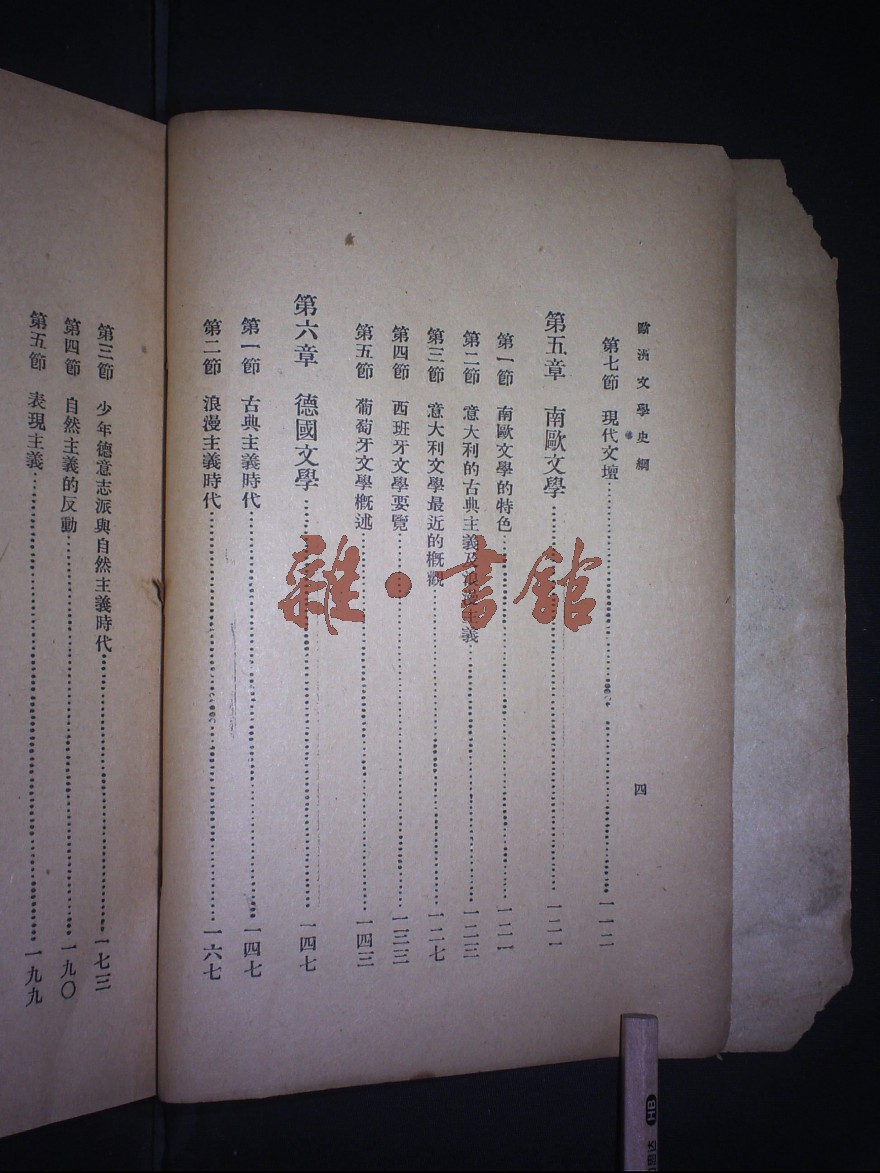 歐洲文學史綱
四
第七節 現代文壇……一一二
第五章 南歐文學……一二一
第一節 南歐文學的特色……一二一
第二節 意大利的古典主義及浪漫主義……一二三
第三節 意大利文學最近的概觀……一二七
第四節 西班牙文學要覽……一三三
第五節 葡萄牙文學概述……一四三
第六章 德國文學……一四七
第一節 古典主義時代……一四七
第二節 浪漫主義時代……一六七
第三節 少年德意志派與自然主義時代……一七三
第四節 自然主義的反動……一九〇
第五節 表現主義……一九九
雜·書館
HB